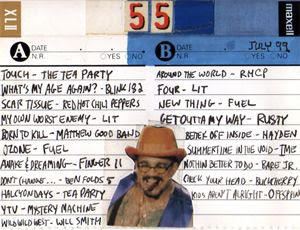 XLII
55
maxell
A DATE
N.R. YES NO
B DATE JULY 99
N.R. YES NO
TOUCH - THE TEA PARTY
WHAT'S MY AGE AGAIN? - BLINK 182
SCAR TISSUE - RED HOT CHILI PEPPERS
MY OWN WORST ENEMY - LIT
BORN TO KILL - MATTHEW GOOD BAND
OZONE - FUEL
AWAKE & DREAMING - FINGER 11
DON'T CHANGE... - BEN FOLDS 5
HALCYON DAYS - TEA PARTY
YTV - MYSTERY MACHINE
WILD WILD WEST - WILL SMITH
AROUND THE WORLD - RHCP
FOUR - LIT
NEW THING - FUEL
GET OUTTA MY WAY - RUSTY
BETTER OFF INSIDE - HAYDEN
SUMMERTIME IN THE VOID - IME
NOTHIN BETTER TO DO - BARE JR.
CHECK YOUR HEAD - BUCKCHERRY
KIDS AREN'T ALRIGHT - OFFSPRING